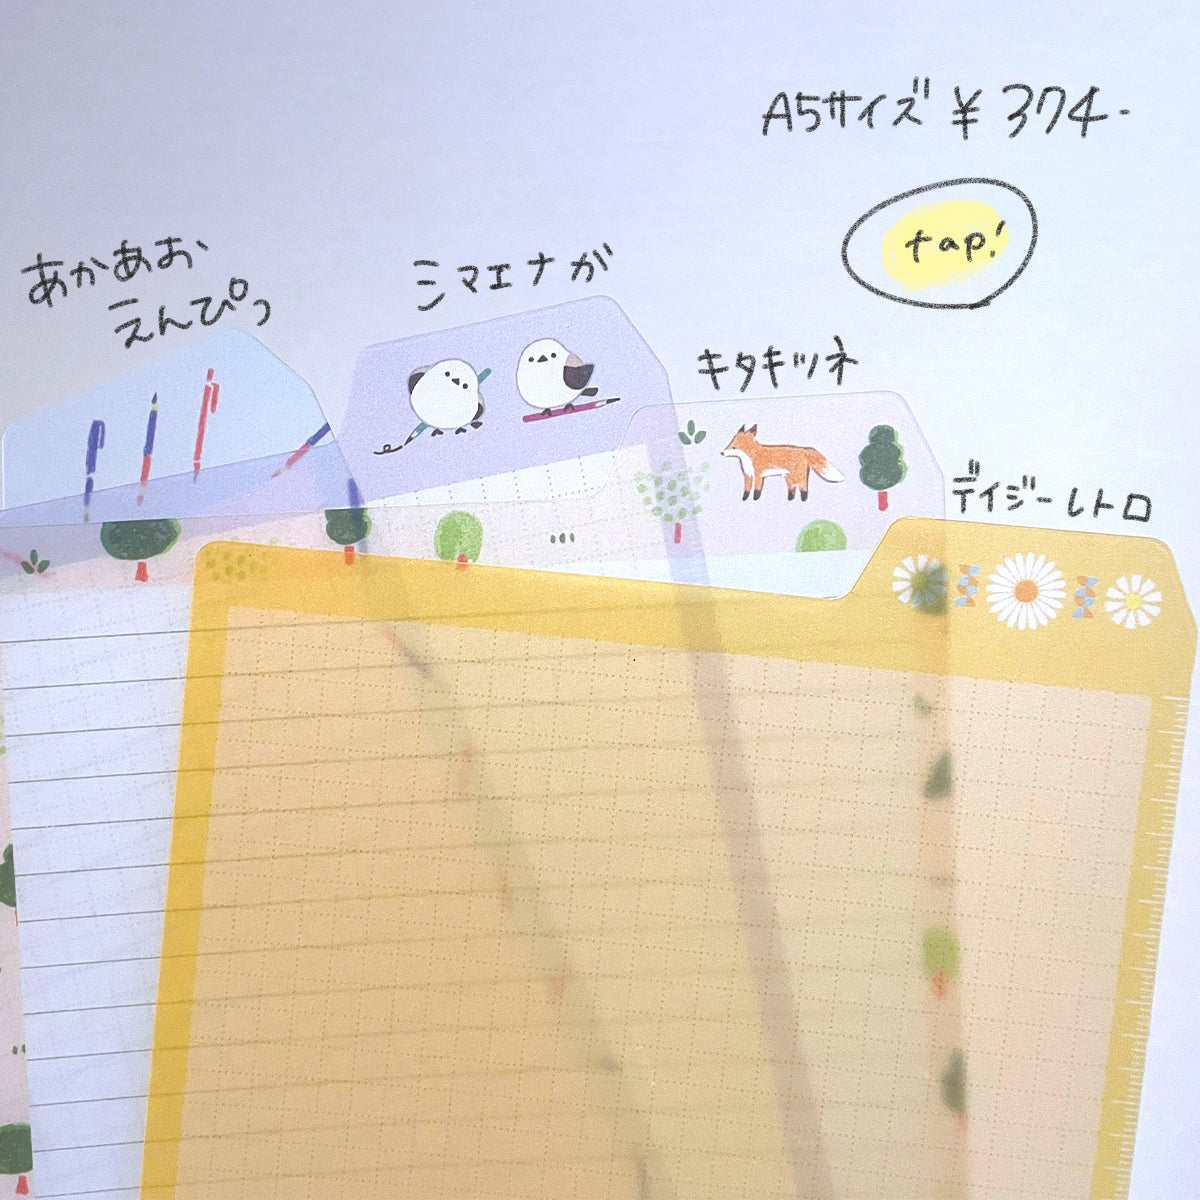 A5サイズ ¥374-
tap!
あかあお
えんぴつ
シマエナガ
キタキツネ
デイジーレトロ